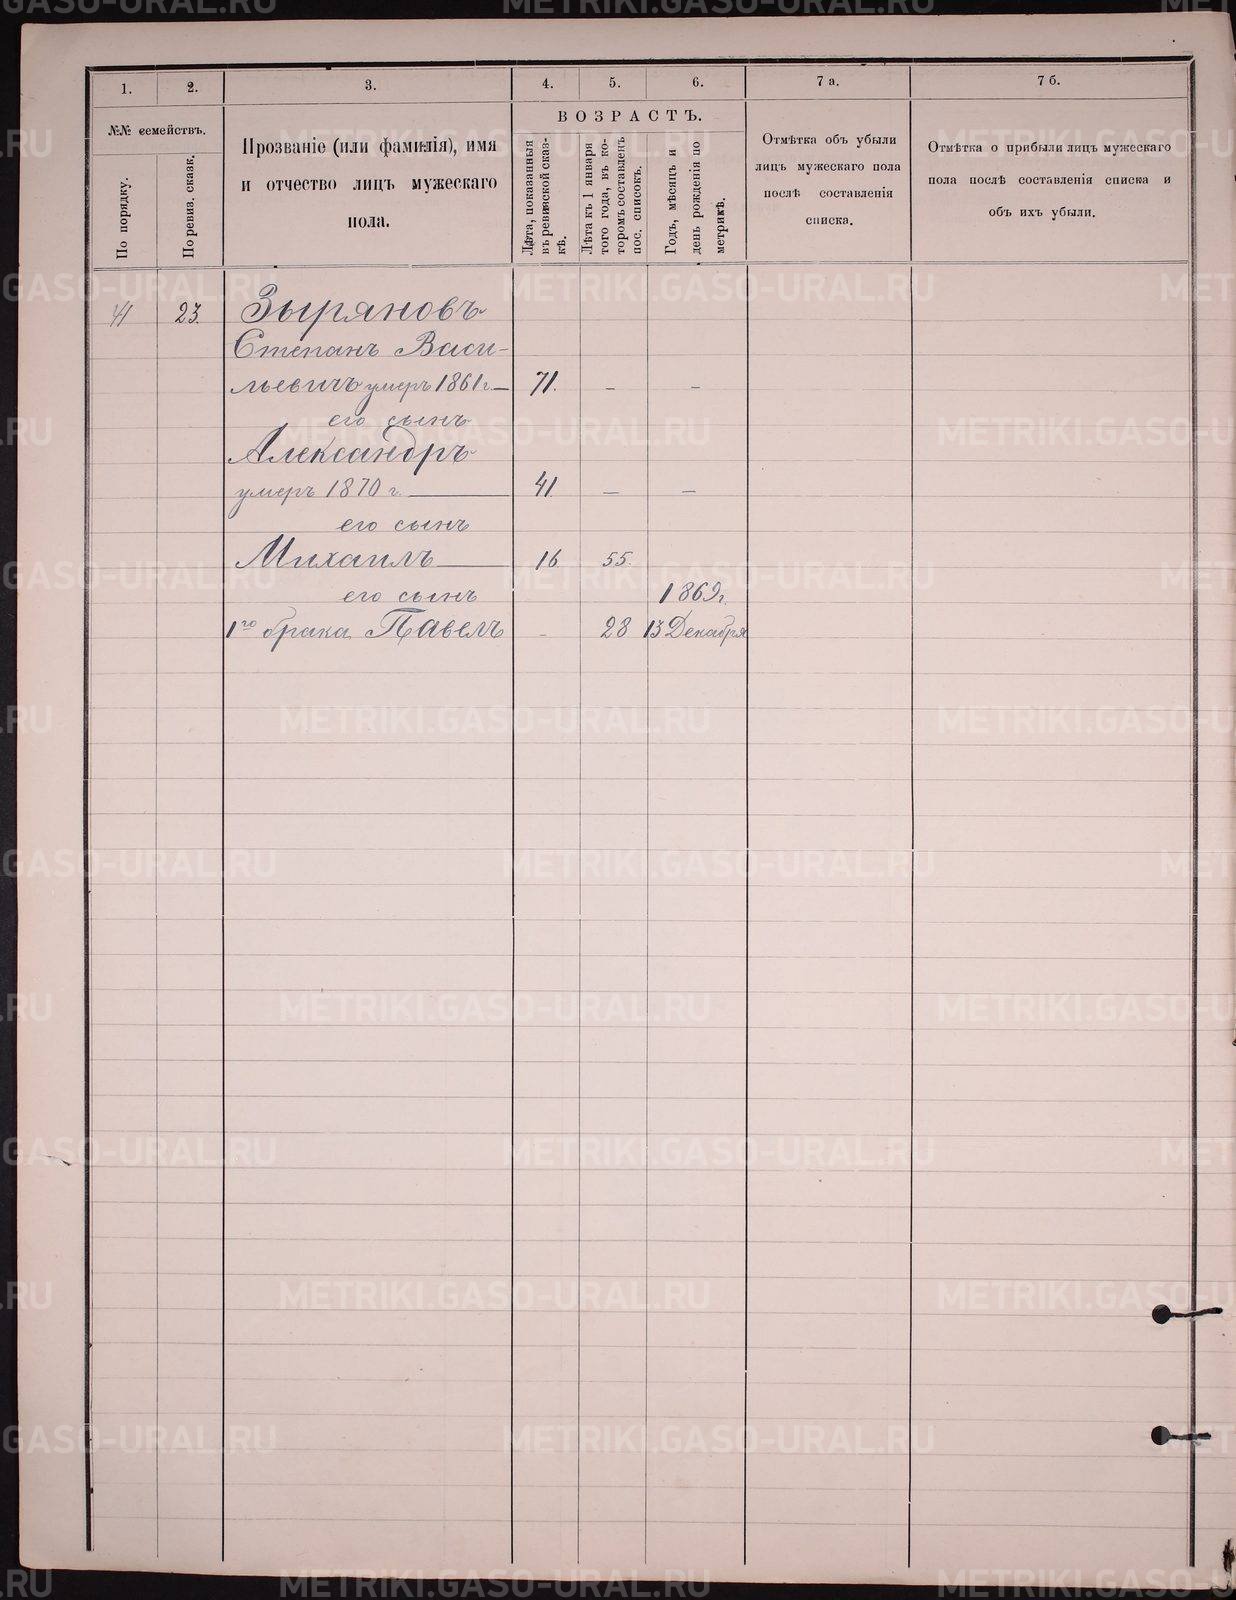 1.
2.
3.
4.
5.
6.
7 а.
7 б.
№№ семействъ.
По порядку.
По ревиз. сказк.
Прозваніе (или фамилія), имя
и отчество лицъ мужескаго
пола.
ВОЗРАСТЪ.
Лѣта, показанныя
въ ревизской сказ-
кѣ.
Лѣта къ 1 января
того года, въ ко-
торомъ составленъ
пос. списокъ.
Годъ, мѣсяцъ и
день рожденія по
метрикѣ.
Отмѣтка объ убыли
лицъ мужескаго пола
послѣ составленія
списка.
Отмѣтка о прибыли лицъ мужескаго
пола послѣ составленія списка и
объ ихъ убыли.
41 23. Зыряновъ
Степанъ Васи-
льевичъ умеръ 1861 г. — 71. – –
его сынъ
Александръ
умеръ 1870 г. — 41 – –
его сынъ
Михаилъ — 16 55.
его сынъ 1869 г.
1го брака Павелъ - 28 13 Декабря
METRIKI.GASO-URAL.RU